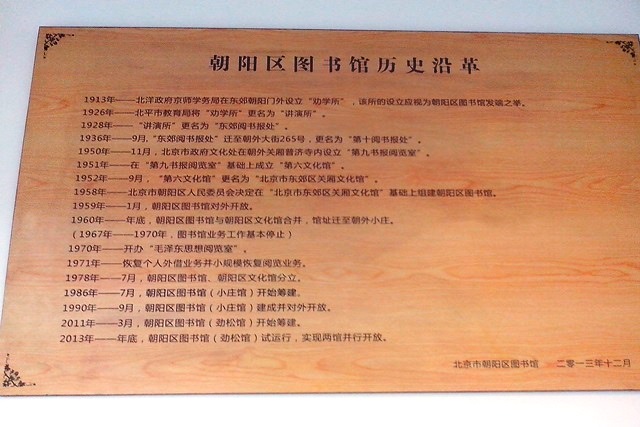 朝阳区图书馆历史沿革
1913年——北洋政府京师学务局在东郊朝阳门外设立“劝学所”，该所的设立应视为朝阳区图书馆发端之举。
1926年——北平市教育局将“劝学所”更名为“讲演所”。
1928年——“讲演所”更名为“东郊阅书报处”。
1936年——9月,“东郊阅书报处”迁至朝外大街265号，更名为“第十阅书报处”。
1950年——11月，北京市政府文化处在朝外关厢普济寺内设立“第九书报阅览室”。
1951年——在“第九书报阅览室”基础上成立“第六文化馆”。
1952年——9月，“第六文化馆”更名为“北京市东郊区关厢文化馆”。
1958年——北京市朝阳区人民委员会决定在“北京市东郊区关厢文化馆”基础上组建朝阳区图书馆。
1959年——1月，朝阳区图书馆对外开放。
1960年——年底，朝阳区图书馆与朝阳区文化馆合并，馆址迁至朝外小庄。
（1967年——1970年，图书馆业务工作基本停止）
1970年——开办“毛泽东思想阅览室”。
1971年——恢复个人外借业务并小规模恢复阅览业务。
1978年——7月，朝阳区图书馆、朝阳区文化馆分立。
1986年——7月，朝阳区图书馆（小庄馆）开始筹建。
1990年——9月，朝阳区图书馆（小庄馆）建成并对外开放。
2011年——3月，朝阳区图书馆（劲松馆）开始筹建。
2013年——年底，朝阳区图书馆（劲松馆）试运行，实现两馆并行开放。
北京市朝阳区图书馆 二零一三年十二月